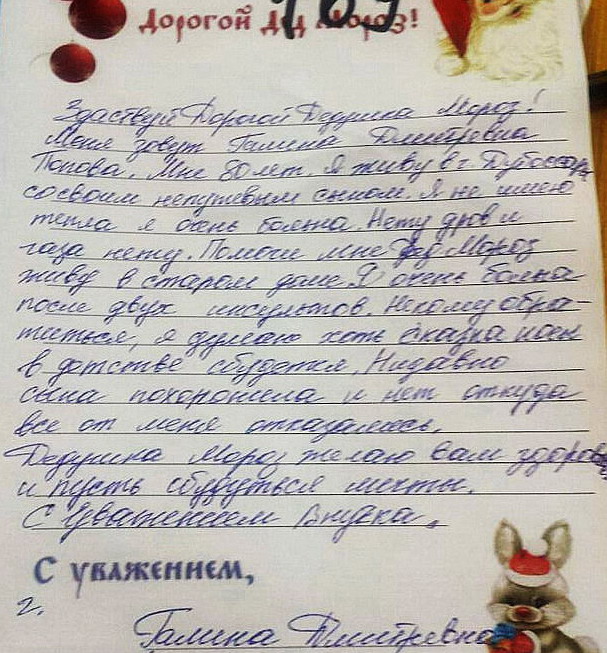 Дорогой Дед Мороз!
Здаствуй Дорогой Дедушка Мороз!
Меня зовут Галина Дмитревна
Попова. Мне 80 лет. Я живу в г. Дубоссары
со своим непутевым сыном. Я не имею
тепла я очень больна. Нету дров и
газа нету. Помоги мне Дед Мороз
живу в старом доме. Я очень больна
после двух инсультов. Некому обра-
титься, я думаю хоть сказка
в детстве сбудется. Нидавно
сына похоронила и нет откуда
все от меня отказались.
Дедушка Мороз желаю вам
и пусть сбудуться мечты.
С Уважением Внучка.
С уважением,
г.
Галина Дмитревна